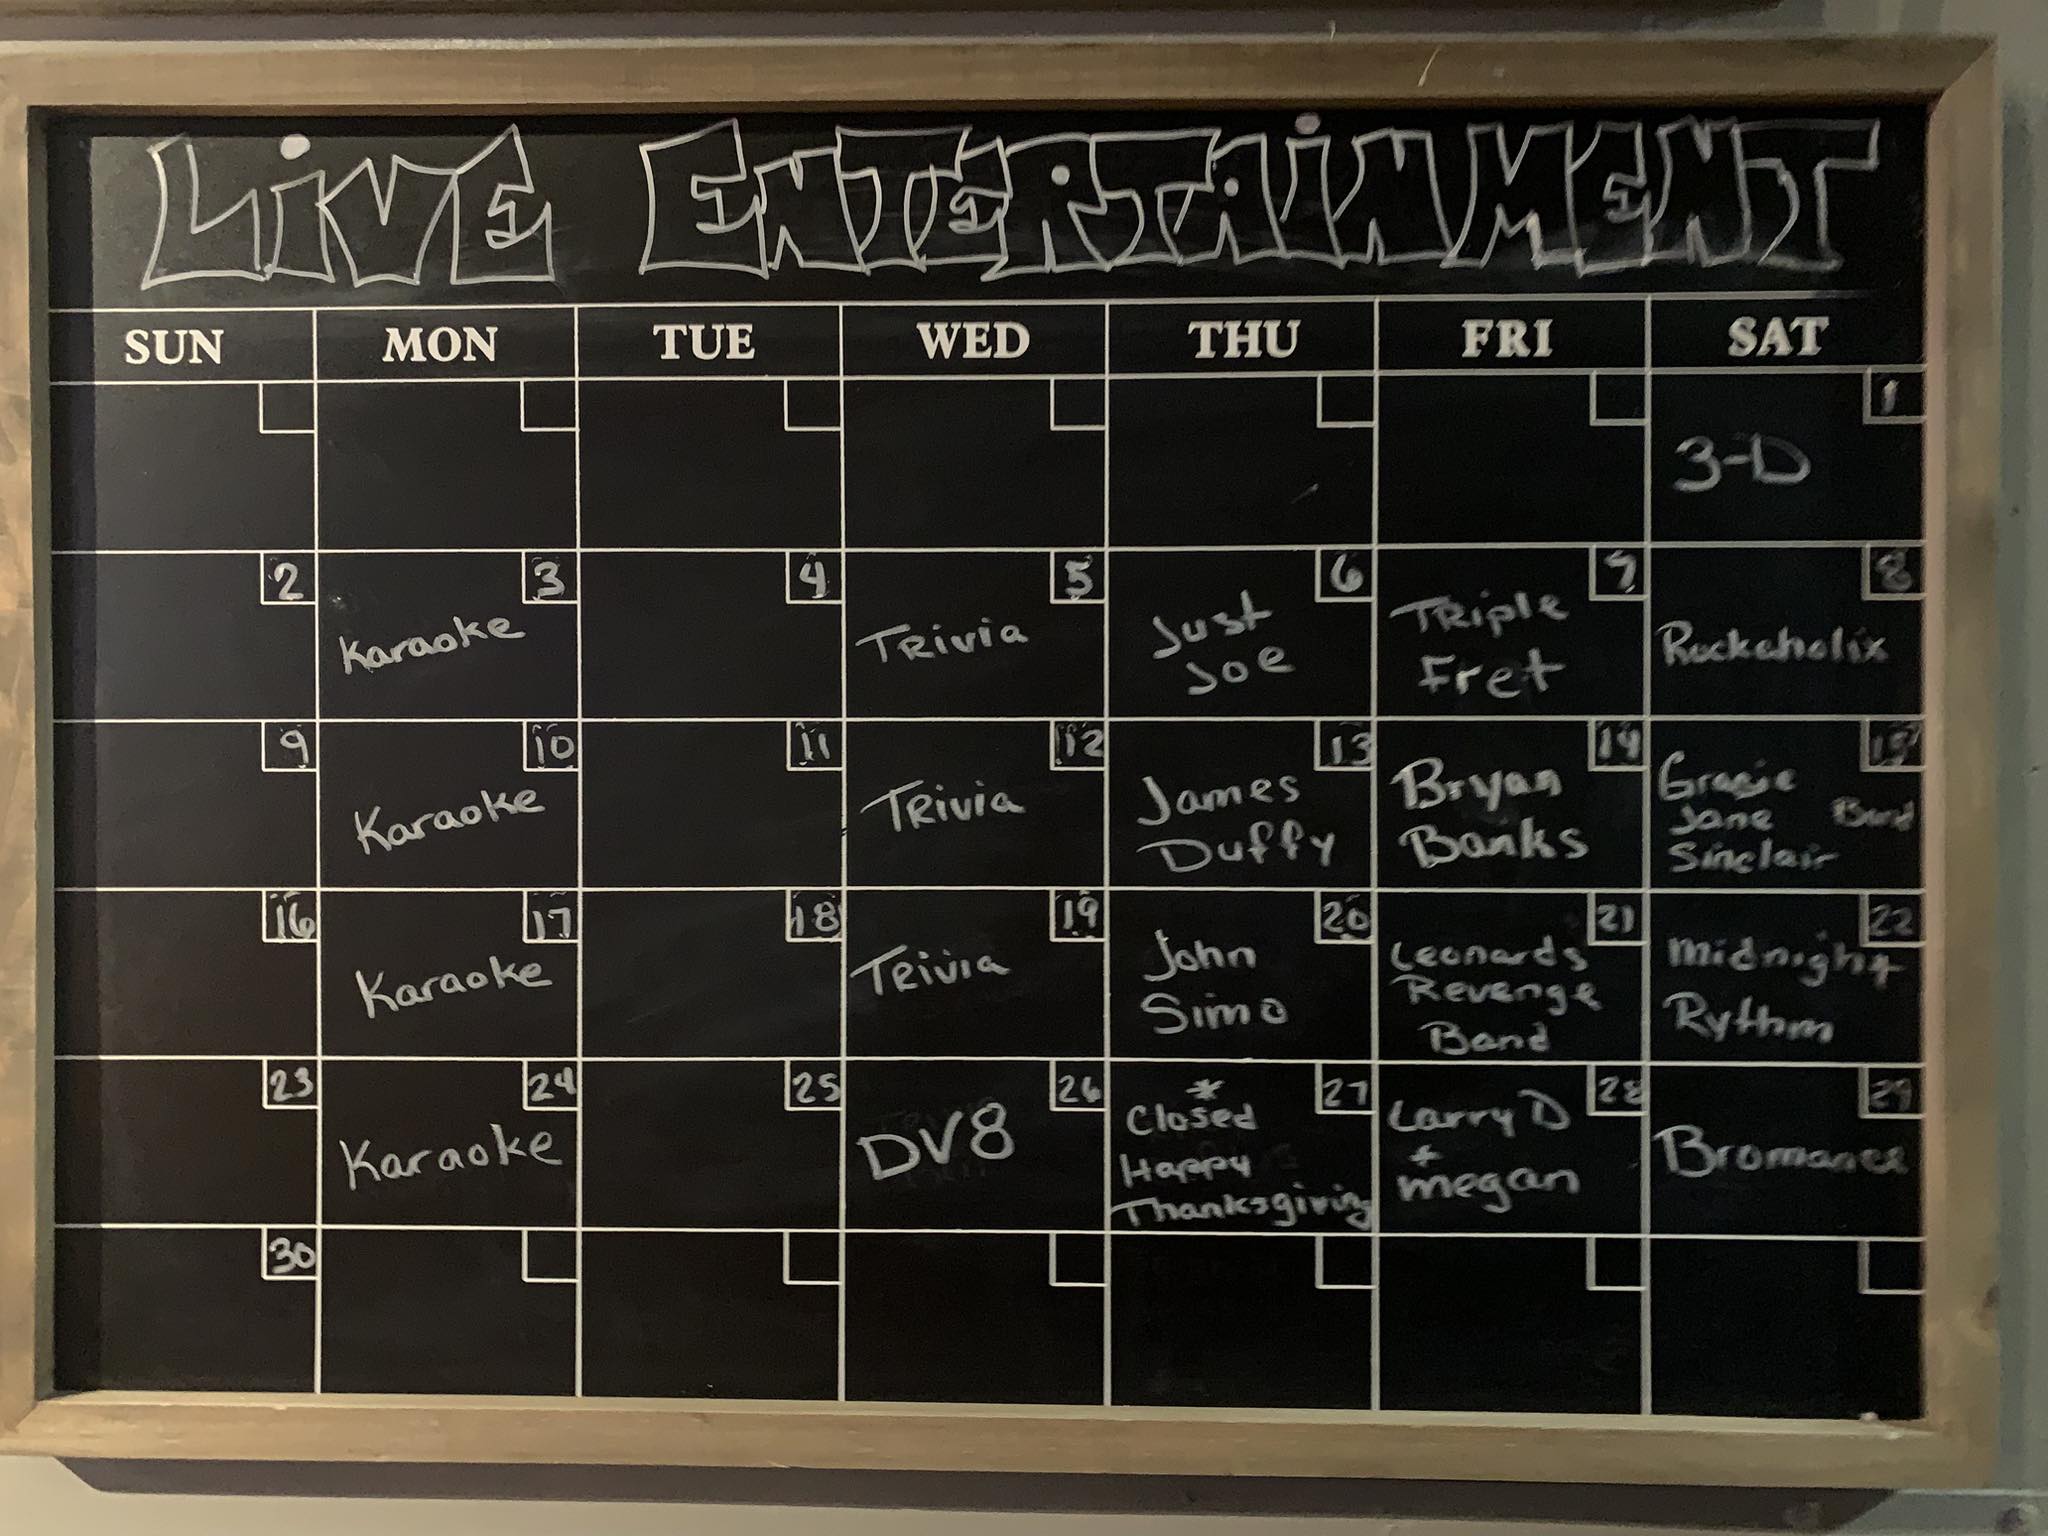 LiVE ENTERTAiNMENT
SUN MON TUE WED THU FRI SAT
1
3-D
2 3 4 5 6 7 8
Karaoke
Trivia
Just
Joe
Triple
Fret
Rockaholix
9 10 11 12 13 14 15
Karaoke
Trivia
James
Duffy
Bryan
Banks
Gracie
Jane Band
Sinclair
16 17 18 19 20 21 22
Karaoke
Trivia
John
Simo
Leonards
Revenge
Band
Midnight
Rythm
23 24 25 26 27 28 29
Karaoke
DV8
*
Closed
Happy
Thanksgiving
Larry D
+
megan
Bromance
30